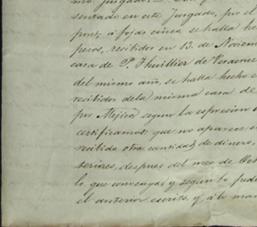 sentado en este Juzgado, por el
pues á fojas cinco se halla
pesos, recibidos en 13 de Noviem
casa de P. Thuillier de Veracruz
del mismo año, se halla hecho
recibidos dela misma casa de
por Mejico segun la espresion
certificamos que no aparece
recibido otra cantidad de dinero,
teriores, despues del mes de
lo que convenga y segun lo
el anterior escrito, y á lo man